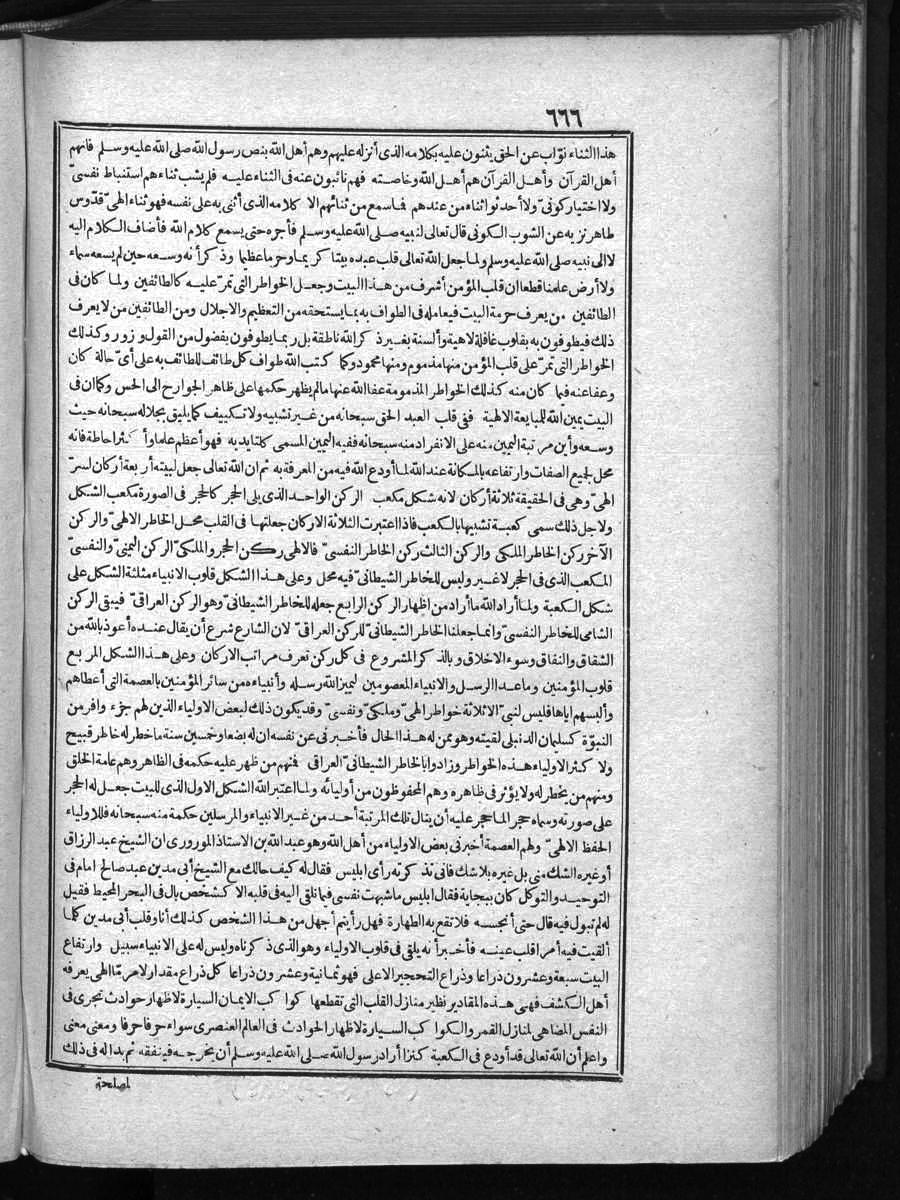 ٦٦٦
هذا الثناء نوّاب عن الحق يثنون عليه بكلامه الذى أنزله عليهم وهم أهل الله بنص رسول الله صلى الله عليه وسلم فانهم
أهل القرآن وأهل القرآن هم أهل الله وخاصته فهم نائبون عنه فى الثناء عليه فلم يشب ثناءهم استنباط نفسىّ
ولا اختيار كونىّ ولا أحدثوا ثناء من عندهم فما سمع من ثنائهم الا كلامه الذى أثنى به على نفسه فهو ثناء الهىّ قدّوس
طاهر نزيه عن الشوب الكونى قال تعالى لنبيه صلى الله عليه وسلم فأجره حتى يسمع كلام الله فأضاف الكلام اليه
لا الى نبيه صلى الله عليه وسلم ولما جعل الله تعالى قلب عبده بيتا كريما وحرما عظيما وذكر أنه وسعه حين لم يسعه سماء
ولا أرض علمنا قطعا ان قلب المؤمن أشرف من هذا البيت وجعل الخواطر التى تمرّ عليه كالطائفين ولما كان فى
الطائفين من يعرف حرمة البيت فيعامله فى الطواف به بما يستحقه من التعظيم والاجلال ومن الطائفين من لا يعرف
ذلك فيطوفون به بقلوب غافلة لاهية وألسنة بغير ذكر الله ناطقة بل ربما يطوفون بفضول من القول وزور وكذلك
الخواطر التى تمرّ على قلب المؤمن منها مذموم ومنها محمود وكما كتب الله طواف كل طائف للطائف به على أىّ حالة كان
وعفا عنه فيما كان منه كذلك الخواطر المذمومة عفا الله عنها ما لم يظهر حكمها على ظاهر الجوارح الى الحس وكما ان فى
البيت يمين الله للمبايعة الالهية ففى قلب العبد الحق سبحانه من غير تشبيه ولا تكييف كما يليق بجلاله سبحانه حيث
وسعه وأين مرتبة اليمين منه على الانفراد منه سبحانه ففيه اليمين المسمى كلتا يديه فهو أعظم علما وأكثر احاطة فانه
محل لجميع الصفات وارتفاعه بالمكانة عند الله لما أودع الله فيه من المعرفة به ثم ان الله تعالى جعل لبيته أربعة أركان لسرّ
الهىّ وهى فى الحقيقة ثلاثة أركان لانه شكل مكعب الركن الواحد الذى يلى الحجر كالحجر فى الصورة مكعب الشكل
ولاجل ذلك سمى كعبة تشبيها بالكعب فاذا اعتبرت الثلاثة الاركان جعلتها فى القلب محل الخاطر الالهىّ والركن
الآخر ركن الخاطر الملكى والركن الثالث ركن الخاطر النفسىّ فالالهى ركن الحجر والملكىّ الركن اليمنىّ والنفسىّ
المكعب الذى فى الحجر لا غير وليس للخاطر الشيطانىّ فيه محل وعلى هذا الشكل قلوب الانبياء مثلثة الشكل على
شكل الكعبة ولما أراد الله ما أراد من اظهار الركن الرابع جعله للخاطر الشيطانىّ وهو الركن العراقىّ فيبقى الركن
الشامى للخاطر النفسىّ وانما جعلنا الخاطر الشيطانىّ للركن العراقىّ لان الشارع شرع أن يقال عنده أعوذ بالله من
الشقاق والنفاق وسوء الاخلاق وبالذكر المشروع فى كل ركن تعرف مراتب الاركان وعلى هذا الشكل المربع
قلوب المؤمنين وما عدا الرسل والانبياء المعصومين ليميز الله رسله وأنبياءه من سائر المؤمنين بالعصمة التى أعطاهم
وألبسهم اياها فليس لنبىّ الا ثلاثة خواطر الهىّ وملكىّ ونفسىّ وقد يكون ذلك لبعض الاولياء الذين لهم جزء وافر من
النبوّة كسليمان الدنبلى لقيته وهو ممن له هذا الحال فأخبرنى عن نفسه ان له بضعا وخمسين سنة ما خطر له خاطر قبيح
ولاكثر الاولياء هذه الخواطر وزادوا بالخاطر الشيطانىّ العراقى فمنهم من ظهر عليه حكمه فى الظاهر وهم عامة الخلق
ومنهم من يخطر له ولا يؤثر فى ظاهره وهم المحفوظون من أوليائه ولما اعتبر الله الشكل الاول الذى للبيت جعل له الحجر
على صورته وسماه حجرا لما حجر عليه أن ينال تلك المرتبة أحد من غير الانبياء والمرسلين حكمة منه سبحانه فللاولياء
الحفظ الالهىّ ولهم العصمة أخبرنى بعض الاولياء من أهل الله وهو عبد الله بن الاستاذ المورورى ان الشيخ عبد الرزاق
أو غيره الشك منى بل غيره بلا شك فانى تذكرته رأى ابليس فقال له كيف حالك مع الشيخ أبى مدين عبد صالح امام فى
التوحيد والتوكل كان ببجاية فقال ابليس ما شبهت نفسى فيما نلقى اليه فى قلبه الا كشخص بال فى البحر المحيط فقيل
له لم تبول فيه قال حتى أنجسه فلا تقع به الطهارة فهل رأيتم أجهل من هذا الشخص كذلك أنا وقلب أبى مدين كلما
ألقيت فيه أمرا قلب عينه فأخبر أنه يلقى فى قلوب الاولياء وهو الذى ذكرناه وليس له على الانبياء سبيل وارتفاع
البيت سبعة وعشرون ذراعا وذراع التحجير الاعلى فهو ثمانية وعشرون ذراعا كل ذراع مقدار لامر مّا الهى يعرفه
أهل الكشف فهى هذه المقادير نظير منازل القلب التى تقطعها كواكب الايمان السيارة لاظهار حوادث تجرى فى
النفس المضاهى لمنازل القمر والكواكب السيارة لاظهار الحوادث فى العالم العنصرى سواء حرفا حرفا ومعنى معنى
واعلم أن الله تعالى قد أودع فى الكعبة كنزا أراد رسول الله صلى الله عليه وسلم أن يخرجه فينفقه ثم بدا له فى ذلك
لمصلحة